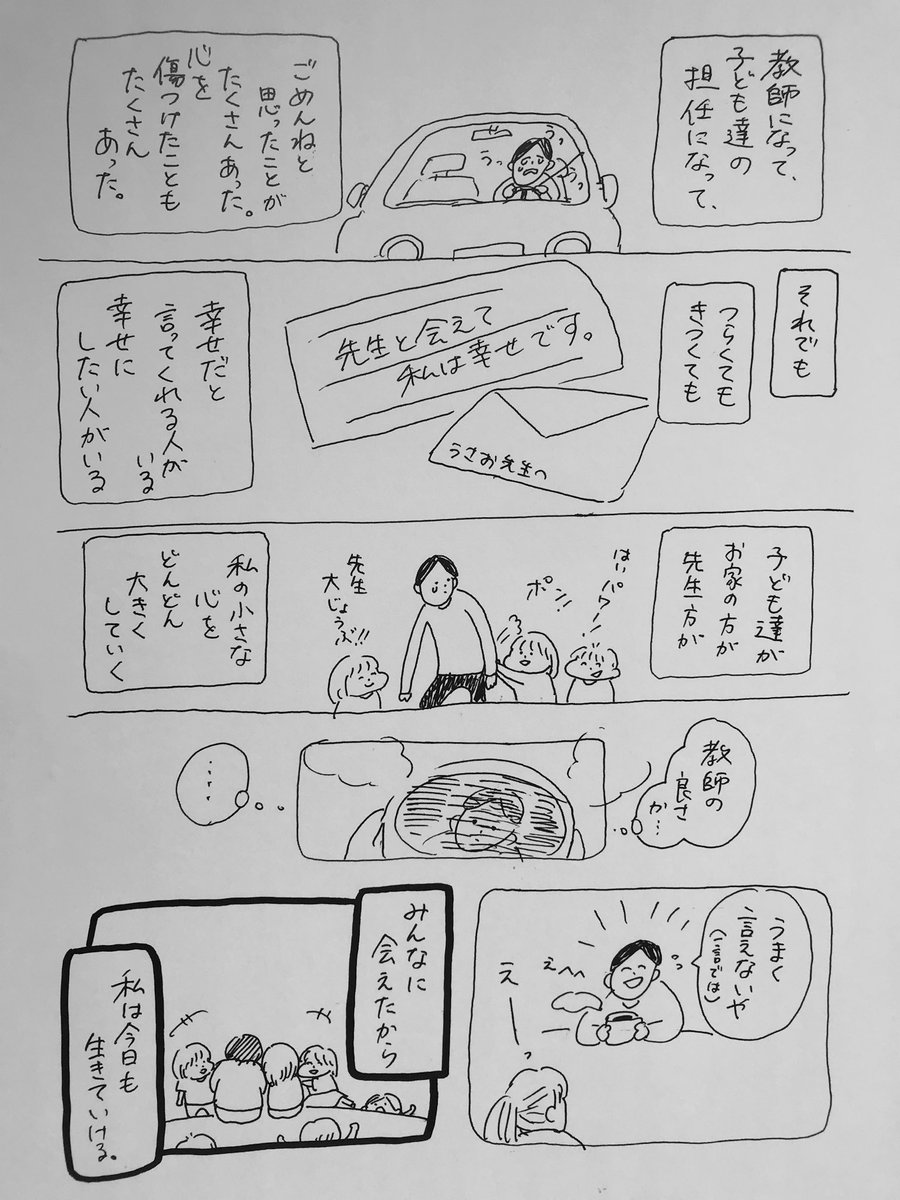 教師になって、
子ども達の
担任になって、
うっ
うっ
うっ
ごめんねと
思ったことが
たくさんあった。
心を
傷つけたことも
たくさん
あった。
それでも
つらくても
きつくても
先生と会えて
私は幸せです。
うさお先生へ
幸せだと
言ってくれる人が
いる
幸せに
したい人がいる
子ども達が
お家の方が
先生方が
はいパワー!
ポン!
先生
大じょうぶ!!
私の小さな
心を
どんどん
大きく
していく
教師の
良さ
か…
‥‥
うまく
言えないや
(一言では)
えへへ
えーっ
みんなに
会えたから
私は今日も
生きていける。